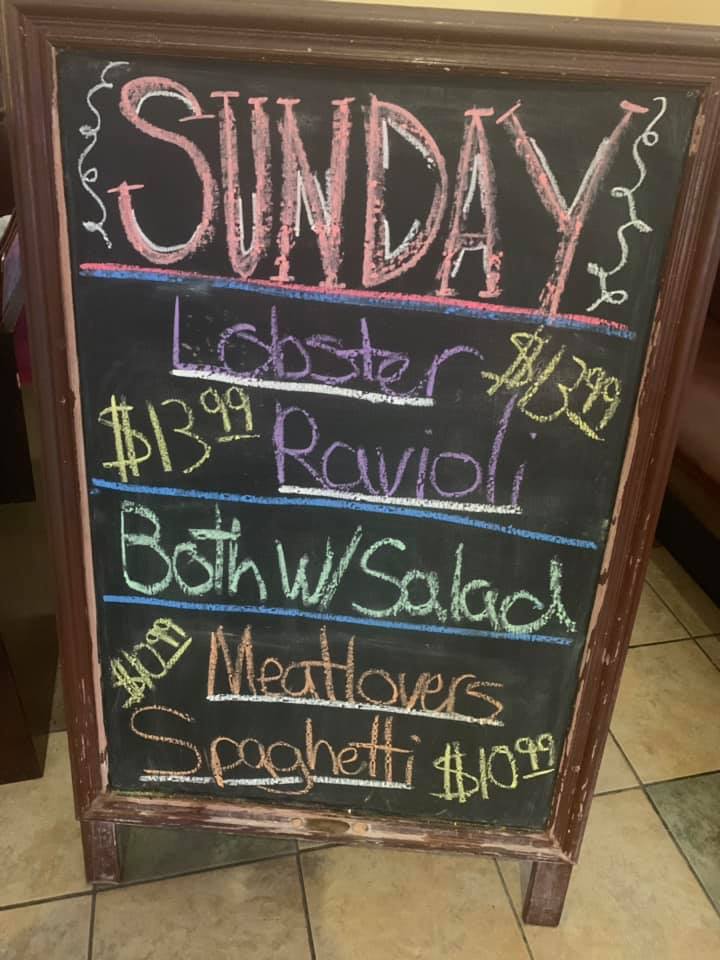 SUNDAY
Lobster $13.99
$13.99 Ravioli
Both w/ Salad
$10.99 Meatlovers
Spaghetti $10.99